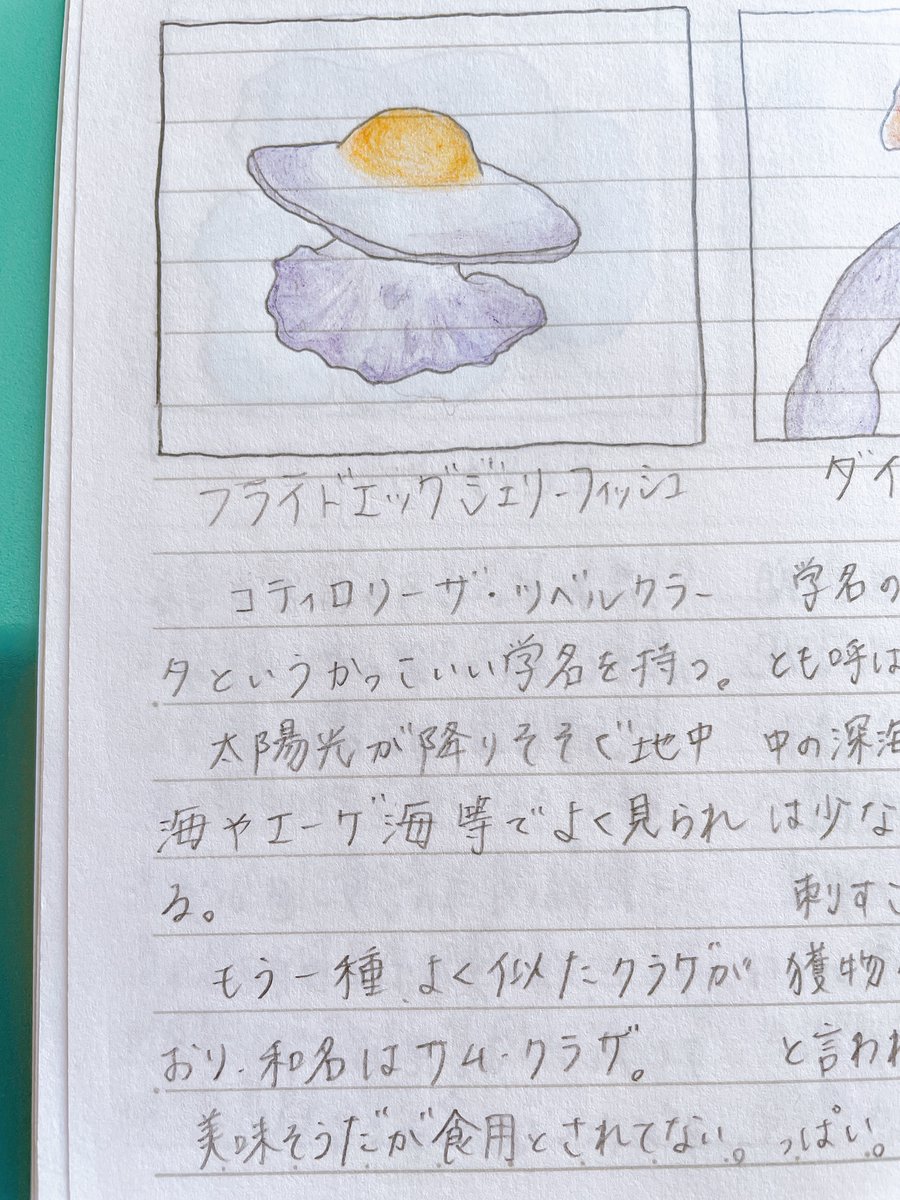 フライドエッグジェリーフィッシュ
コティロリーザ・ツベルクラー
タというかっこいい学名を持つ。
太陽光が降りそそぐ地中
海やエーゲ海等でよく見られ
る。
もう一種、よく似たクラゲが
おり、和名はサムクラゲ。
美味そうだが食用とされてない。
ダイ
学名の
とも呼は
中の深海
は少な
刺すこ
獲物
と言われ
っぱい。